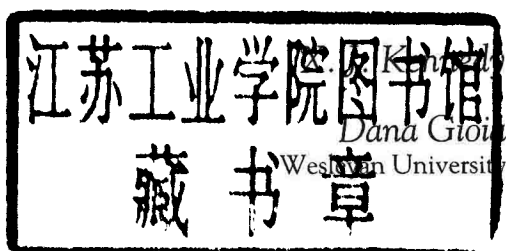 江苏工业学院图书馆
X. J. Kennedy
Dana Gioia
Wesleyan University
藏书章